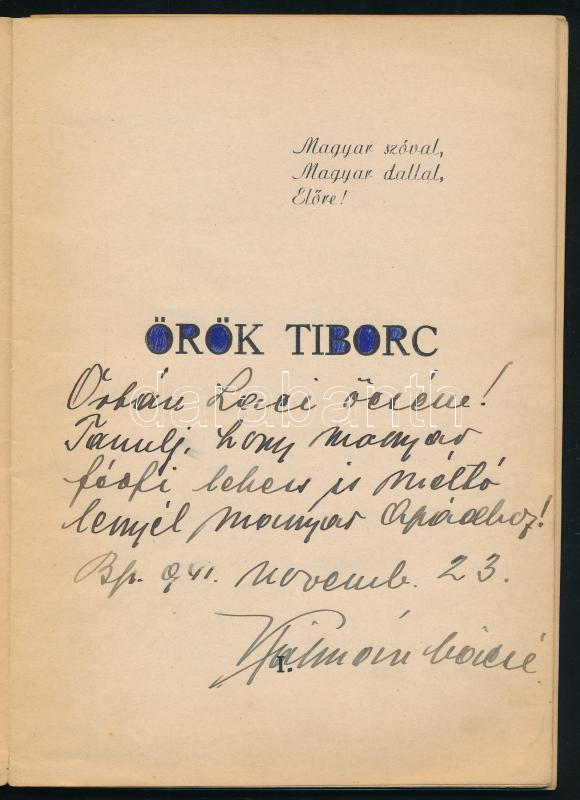 Magyar szóval,
Magyar dallal,
Előre!
ÖRÖK TIBORC
Orbán Laci öcséne!
Tanulj, hogy magyar
férfi lehess és méltó
legyél magyar Apádhoz!
Bp. 941. novemb. 23.
Kálmán bácsi
I.
darabanth